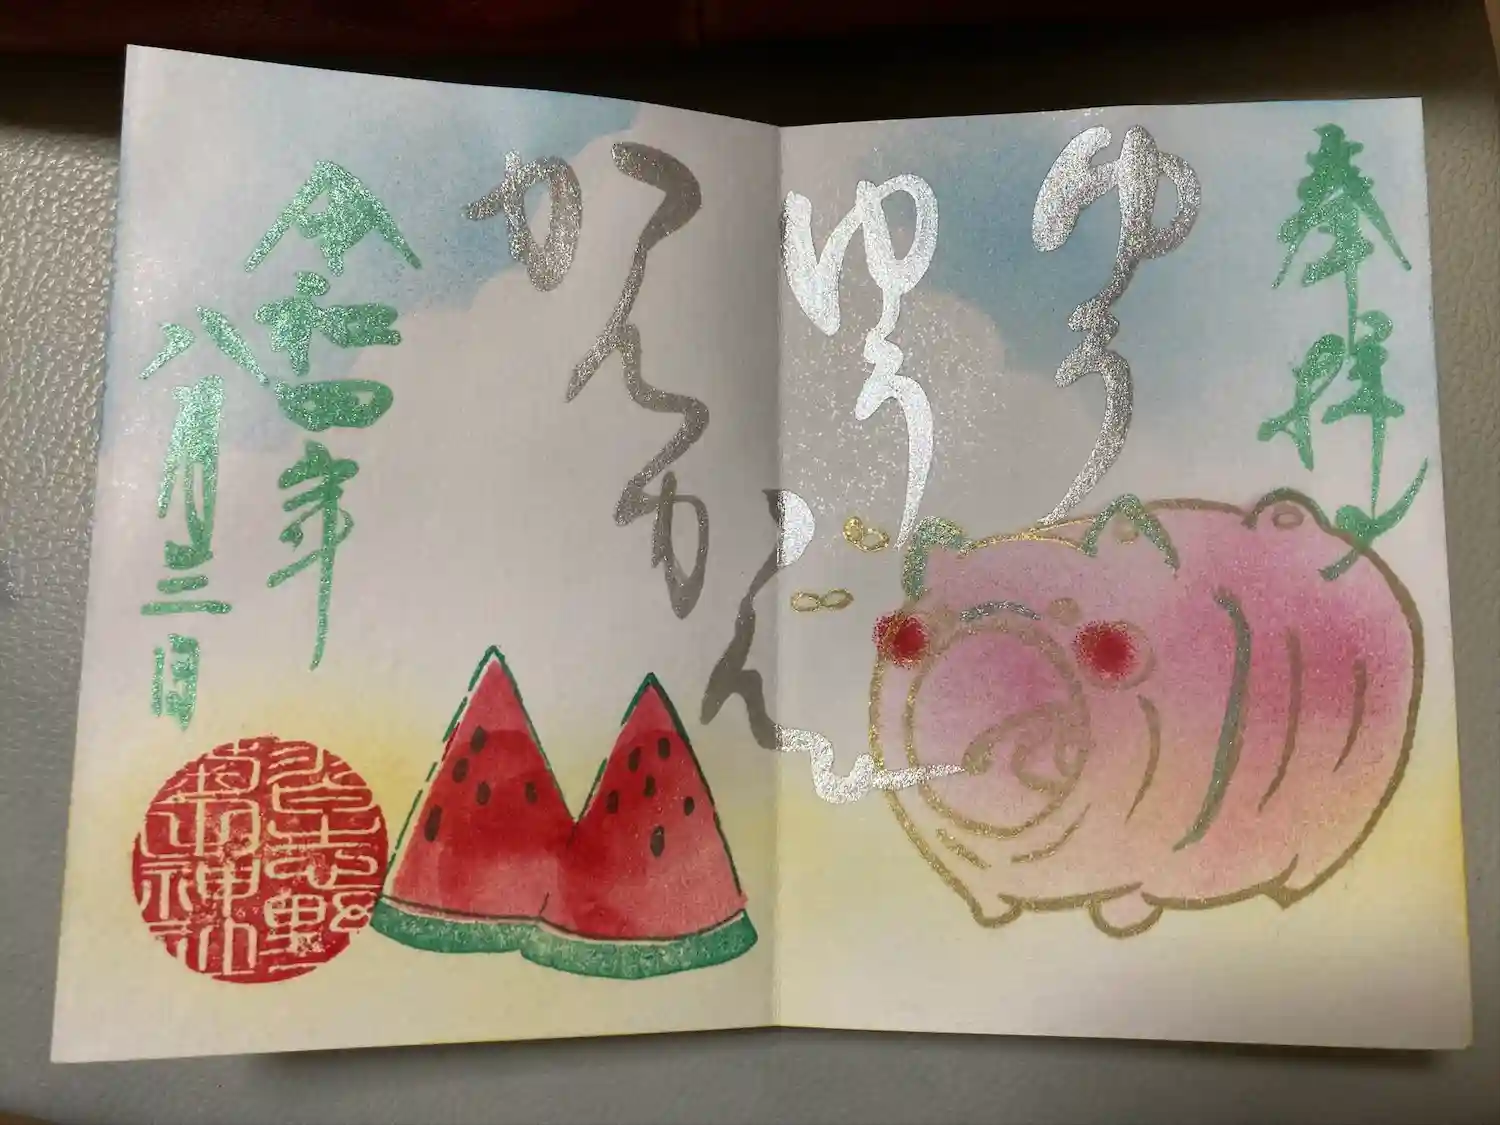 奉拝
ゆう
ゆう
かん
かん
令和四年
八月三日